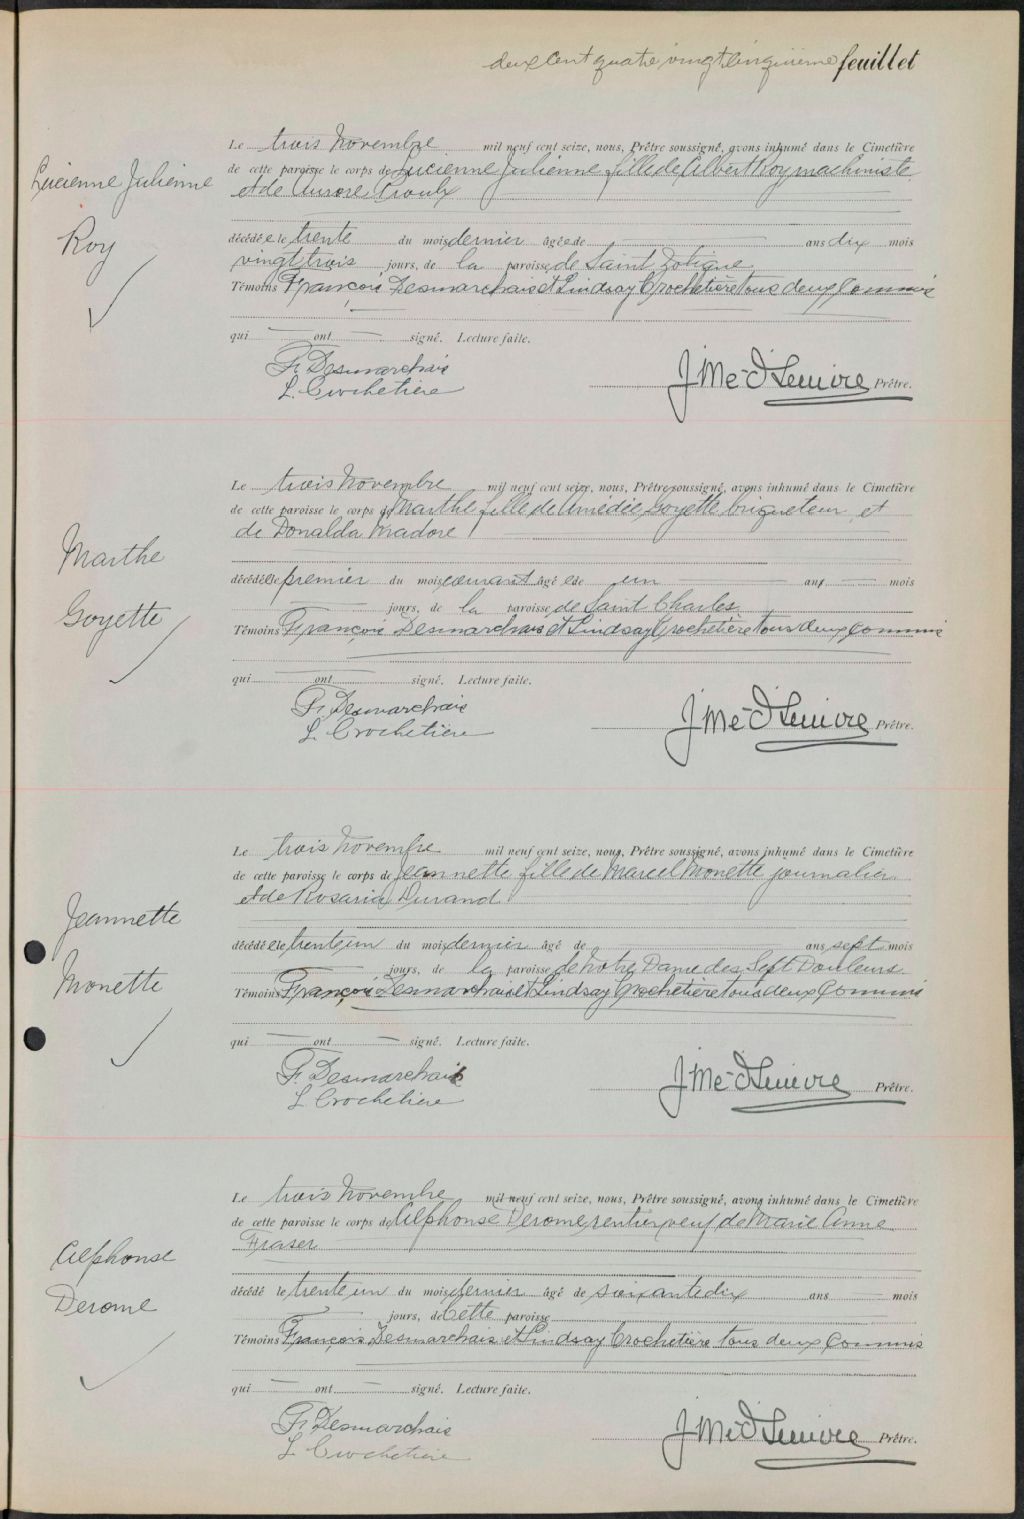 deux cent quatre vingt cinquième feuillet
Lucienne Julienne
Roy
Le trois Novembre mil neuf cent seize, nous, Prêtre soussigné, avons inhumé dans le Cimetière
de cette paroisse le corps de Lucienne Julienne fille de Albert Roy machiniste
et de Aurore Proulx
décédée le trente du mois dernier âgée de ans dix mois
vingt trois jours, de la paroisse de Saint Zotique
Témoins François Desmarchais et Lindsay Crochetière tous deux commis
qui ont signé. Lecture faite.
F. Desmarchais
L. Crochetière
Prêtre.
Marthe
Goyette
Le trois Novembre mil neuf cent seize, nous, Prêtre soussigné, avons inhumé dans le Cimetière
de cette paroisse le corps de Marthe fille de Amédée Goyette briqueteur et
de Donalda Madore
décédée le premier du mois courant âgée de un ans mois
jours, de la paroisse de Saint Charles
Témoins François Desmarchais et Lindsay Crochetière tous deux commis
qui ont signé. Lecture faite.
F. Desmarchais
L. Crochetière
Prêtre.
Jeannette
Monette
Le trois Novembre mil neuf cent seize, nous, Prêtre soussigné, avons inhumé dans le Cimetière
de cette paroisse le corps de Jeannette fille de Marcel Monette journalier
et de Rosaria Durand
décédée le trente un du mois dernier âgé de ans sept mois
jours, de la paroisse de Notre Dame des Sept Douleurs
Témoins François Desmarchais et Lindsay Crochetière tous deux commis
qui ont signé. Lecture faite.
F. Desmarchais
L. Crochetière
Prêtre.
Alphonse
Derome
Le trois Novembre mil neuf cent seize, nous, Prêtre soussigné, avons inhumé dans le Cimetière
de cette paroisse le corps de Alphonse Derome, rentier, veuf de Marie Anne
Fraser
décédé le trente un du mois dernier âgé de soixante dix ans mois
jours, de Cette paroisse
Témoins François Desmarchais et Lindsay Crochetière tous deux commis
qui ont signé. Lecture faite.
F. Desmarchais
L. Crochetière
Prêtre.